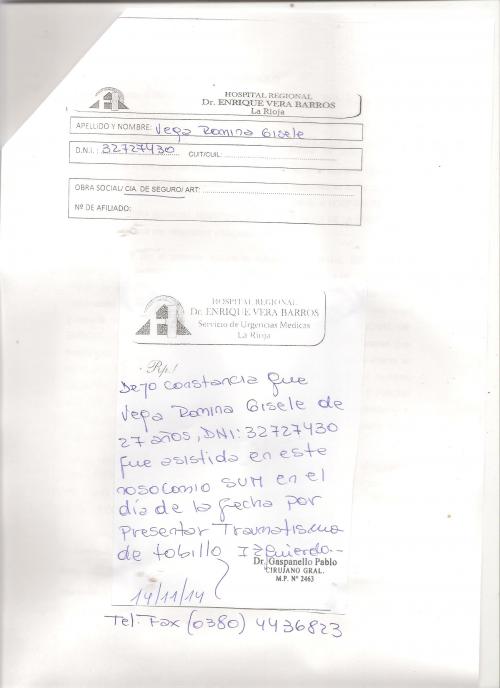 HOSPITAL REGIONAL
Dr. ENRIQUE VERA BARROS
La Rioja
APELLIDO Y NOMBRE: Vega Romina Gisele
D.N.I.: 32727430 CUIT/CUIL:
OBRA SOCIAL/ CIA. DE SEGURO/ ART:
Nº DE AFILIADO:
HOSPITAL REGIONAL
Dr. ENRIQUE VERA BARROS
Servicio de Urgencias Medicas
La Rioja
Rp.!
Dejo constancia que
Vega Romina Gisele de
27 años, DNI: 32727430
fue asistida en este
nosocomio SUM en el
día de la fecha por
Presentar Traumatismo
de tobillo Izquierdo.-
Dr. Gaspanello Pablo
CIRUJANO GRAL.
M.P. Nº 2463
14/11/14
Tel: Fax (0380) 4436823